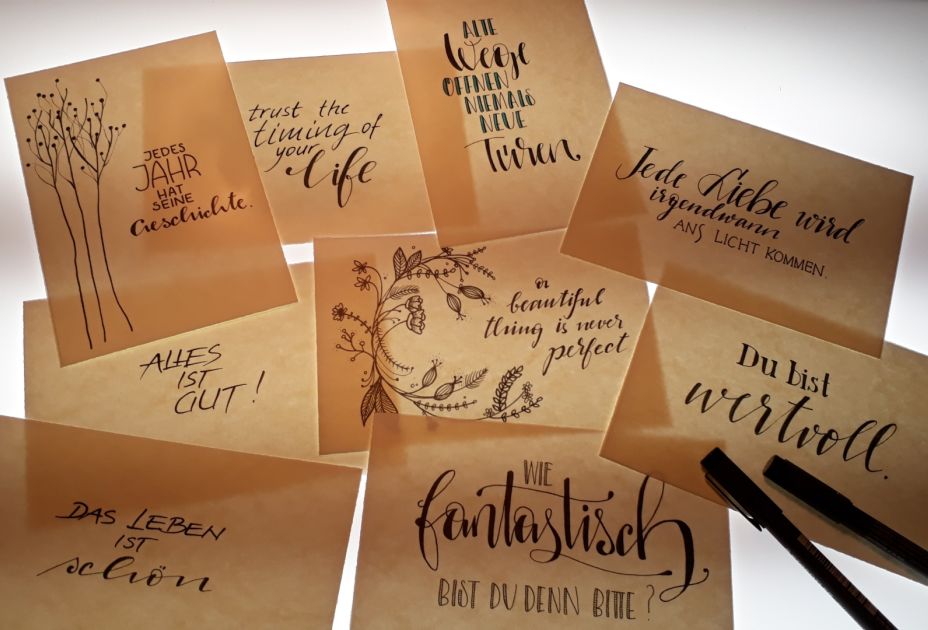 JEDES
JAHR
HAT
SEINE
Geschichte.
trust the
timing of
your life
ALTE
Wege
ÖFFNEN
NIEMALS
NEUE
Türen.
Jede Liebe wird
irgendwann
ANS LICHT KOMMEN.
ALLES
IST
GUT!
a
beautiful
thing is never
perfect
Du bist
wertvoll.
DAS LEBEN
IST
schön
WIE
fantastisch
BIST DU DENN BITTE?